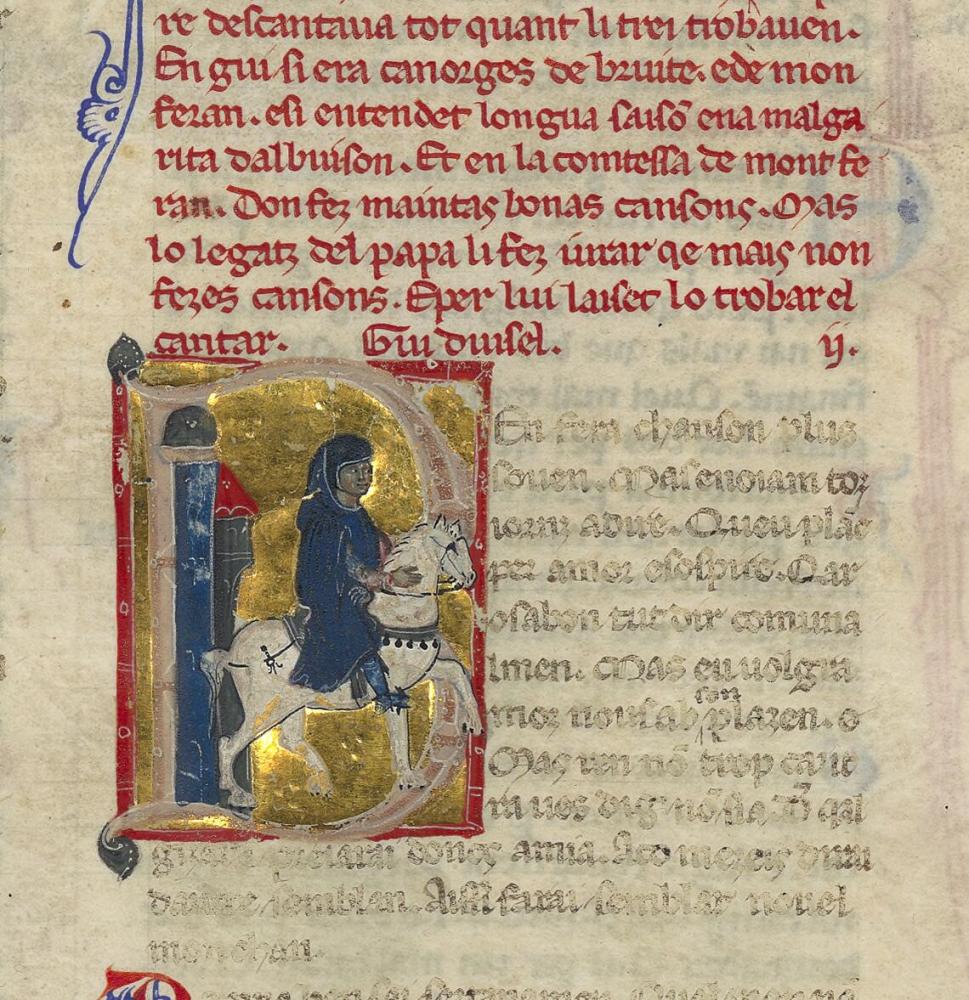 re descantaua tot quant li trei trobauen.
En gui si era canorges de briuite. ede mon
feran. esi entendet longua saisõ ena malga
rita dalbuison. Et en la comtessa de mont fe
ran. Don fez maintas bonas cansons. Mas
lo legatz del papa li fez iurar qe mais non
fezes cansons. Eper lui laiset lo trobar el
cantar. Gui duisel. ij.
En fera chanson plus
souen. Mas enoiam tot
iorn adire. Queu plãc
per amor esospire. Qar
osabon tut dir comuna
lmen. Mas eu uolgra
motz nous ab son plazen.
Mas ren nõ trop
donc amia.
semblan. Aissi farai semblar nouel
mon chan.